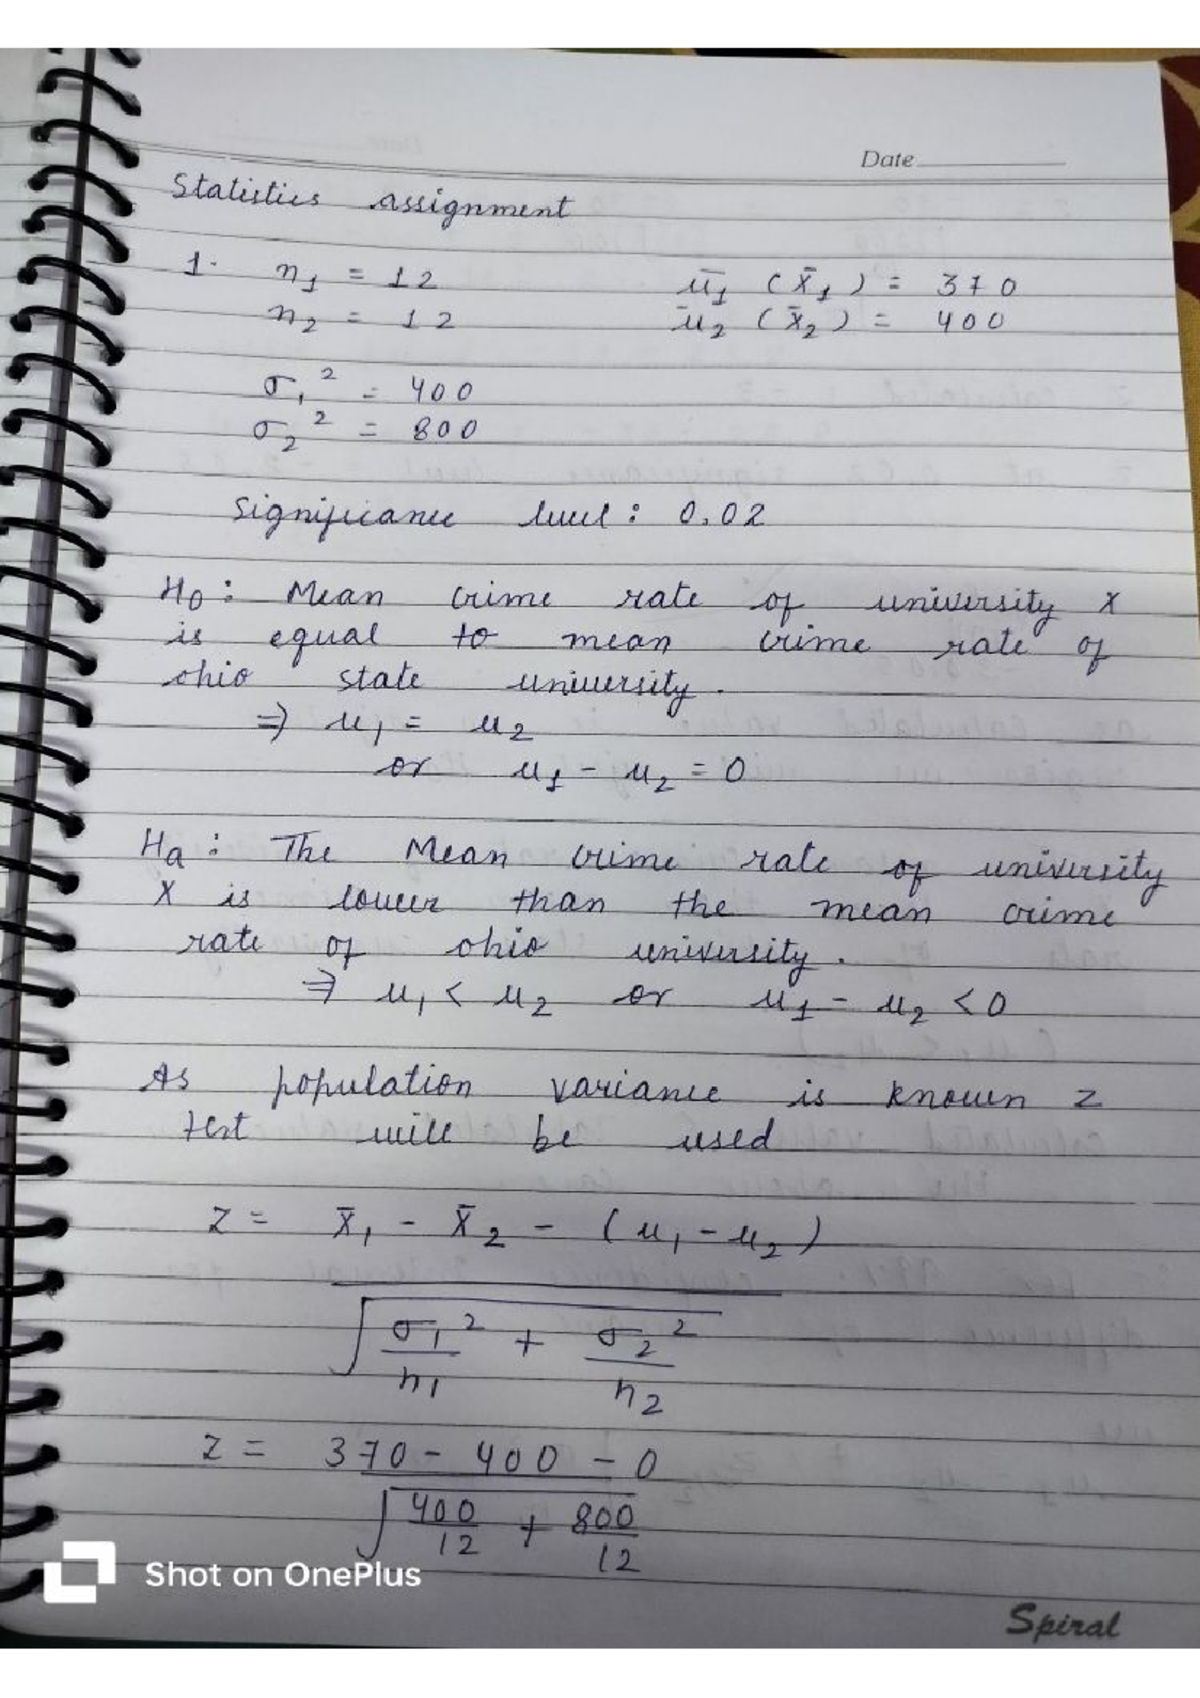 Date
Statistics assignment
1. n₁ = 12 μ̄₁ (x̄₁) = 370
n₂ = 12 μ̄₂ (x̄₂) = 400
σ₁² = 400
σ₂² = 800
Significance level: 0.02
H₀: Mean crime rate of university X
is equal to mean crime rate of
ohio state university.
⇒ μ₁ = μ₂
or μ₁ - μ₂ = 0
Hₐ: The Mean crime rate of university
X is lower than the mean crime
rate of ohio university.
⇒ μ₁ < μ₂ or μ₁ - μ₂ < 0
As population variance is known z
test will be used
z = x̄₁ - x̄₂ - (μ₁ - μ₂)
√ σ₁²/n₁ + σ₂²/n₂
z = 370 - 400 - 0
√ 400/12 + 800/12
Shot on OnePlus
Spiral